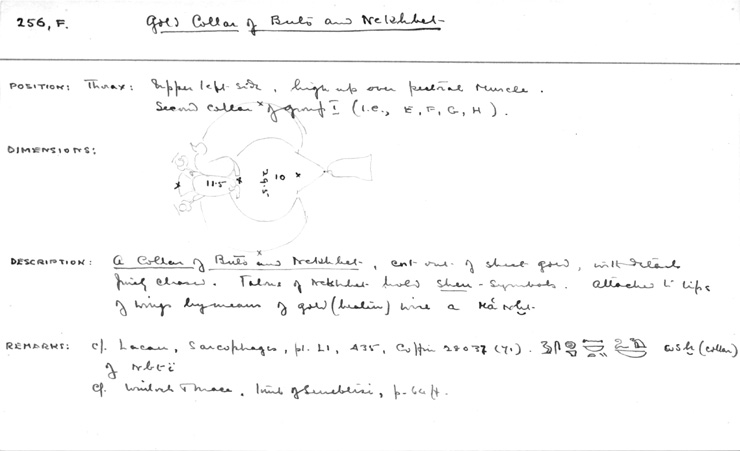 256, F. Gold Collar of Buto and Nekhbet
POSITION: Thorax: Upper left-side, high up over pectoral muscle.
Second collar of group I (i.e., E, F, G, H).
DIMENSIONS:
x 11.5 x 29.5 10 x
DESCRIPTION: A Collar of Buto and Nekhbet, cut out of sheet gold, with details
finely chased. Talons of Nekhbet hold shen-symbols. Attached to tips
of wings by means of gold (beaten) wire a
REMARKS: cf. Lacau, Sarcophages, pl. LI, 435, Coffin 28037 (71). wsḫ (collar)
of Nbtï
cf. Winlock & Mace, Tomb of Senebtisi, p. 64 ff.